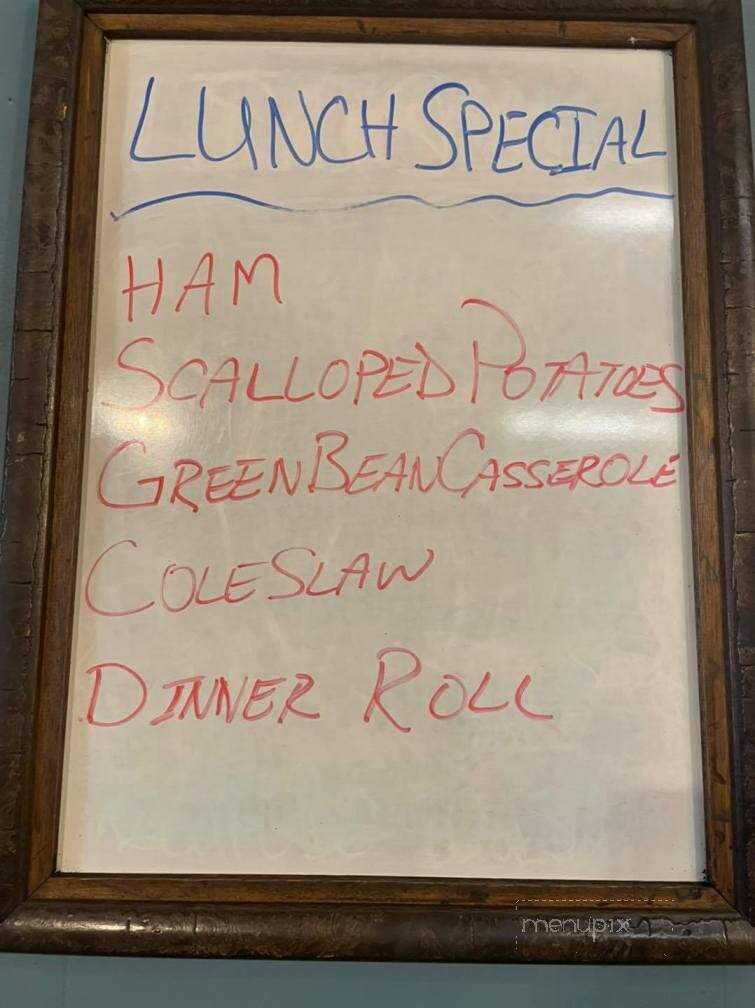 LUNCH SPECIAL
HAM
SCALLOPED POTATOES
GREEN BEAN CASSEROLE
COLESLAW
DINNER ROLL
menupix